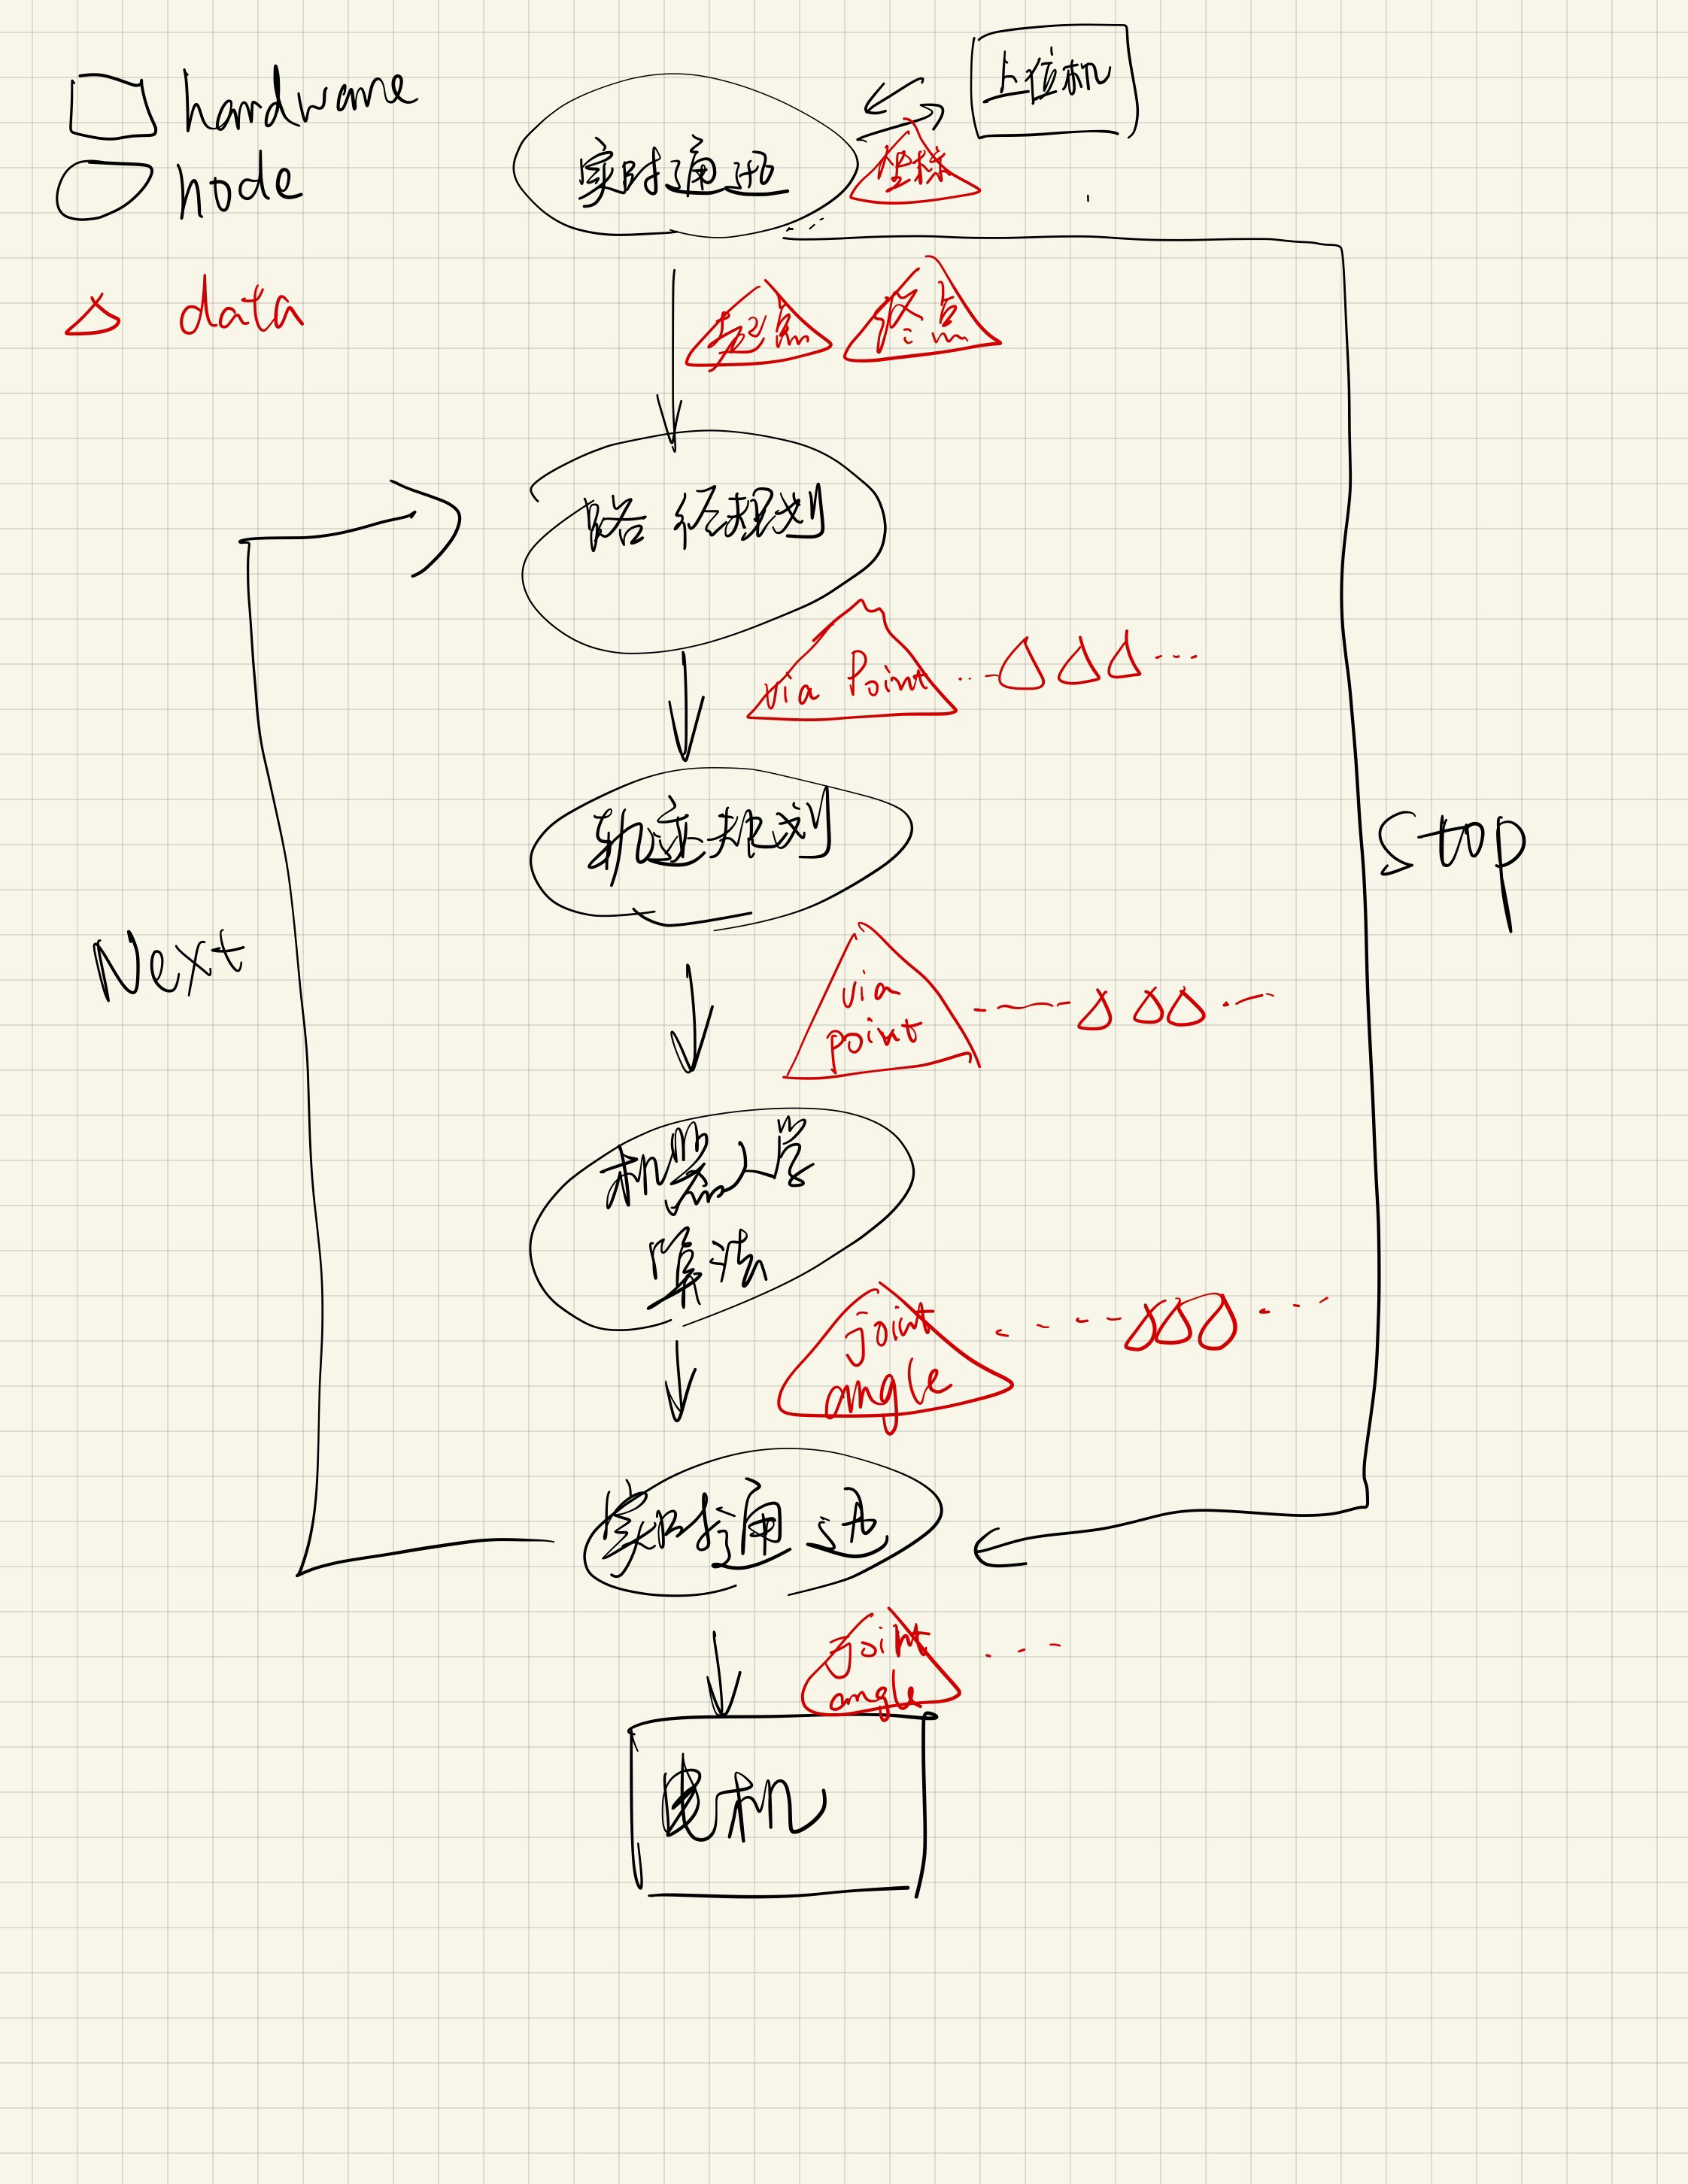 hardware
node
data
上位机
实时通讯
坐标
起点
终点
路径规划
via Point
轨迹规划
Stop
Next
via
point
机器人学
算法
joint
angle
实时通讯
Joint
angle
电机